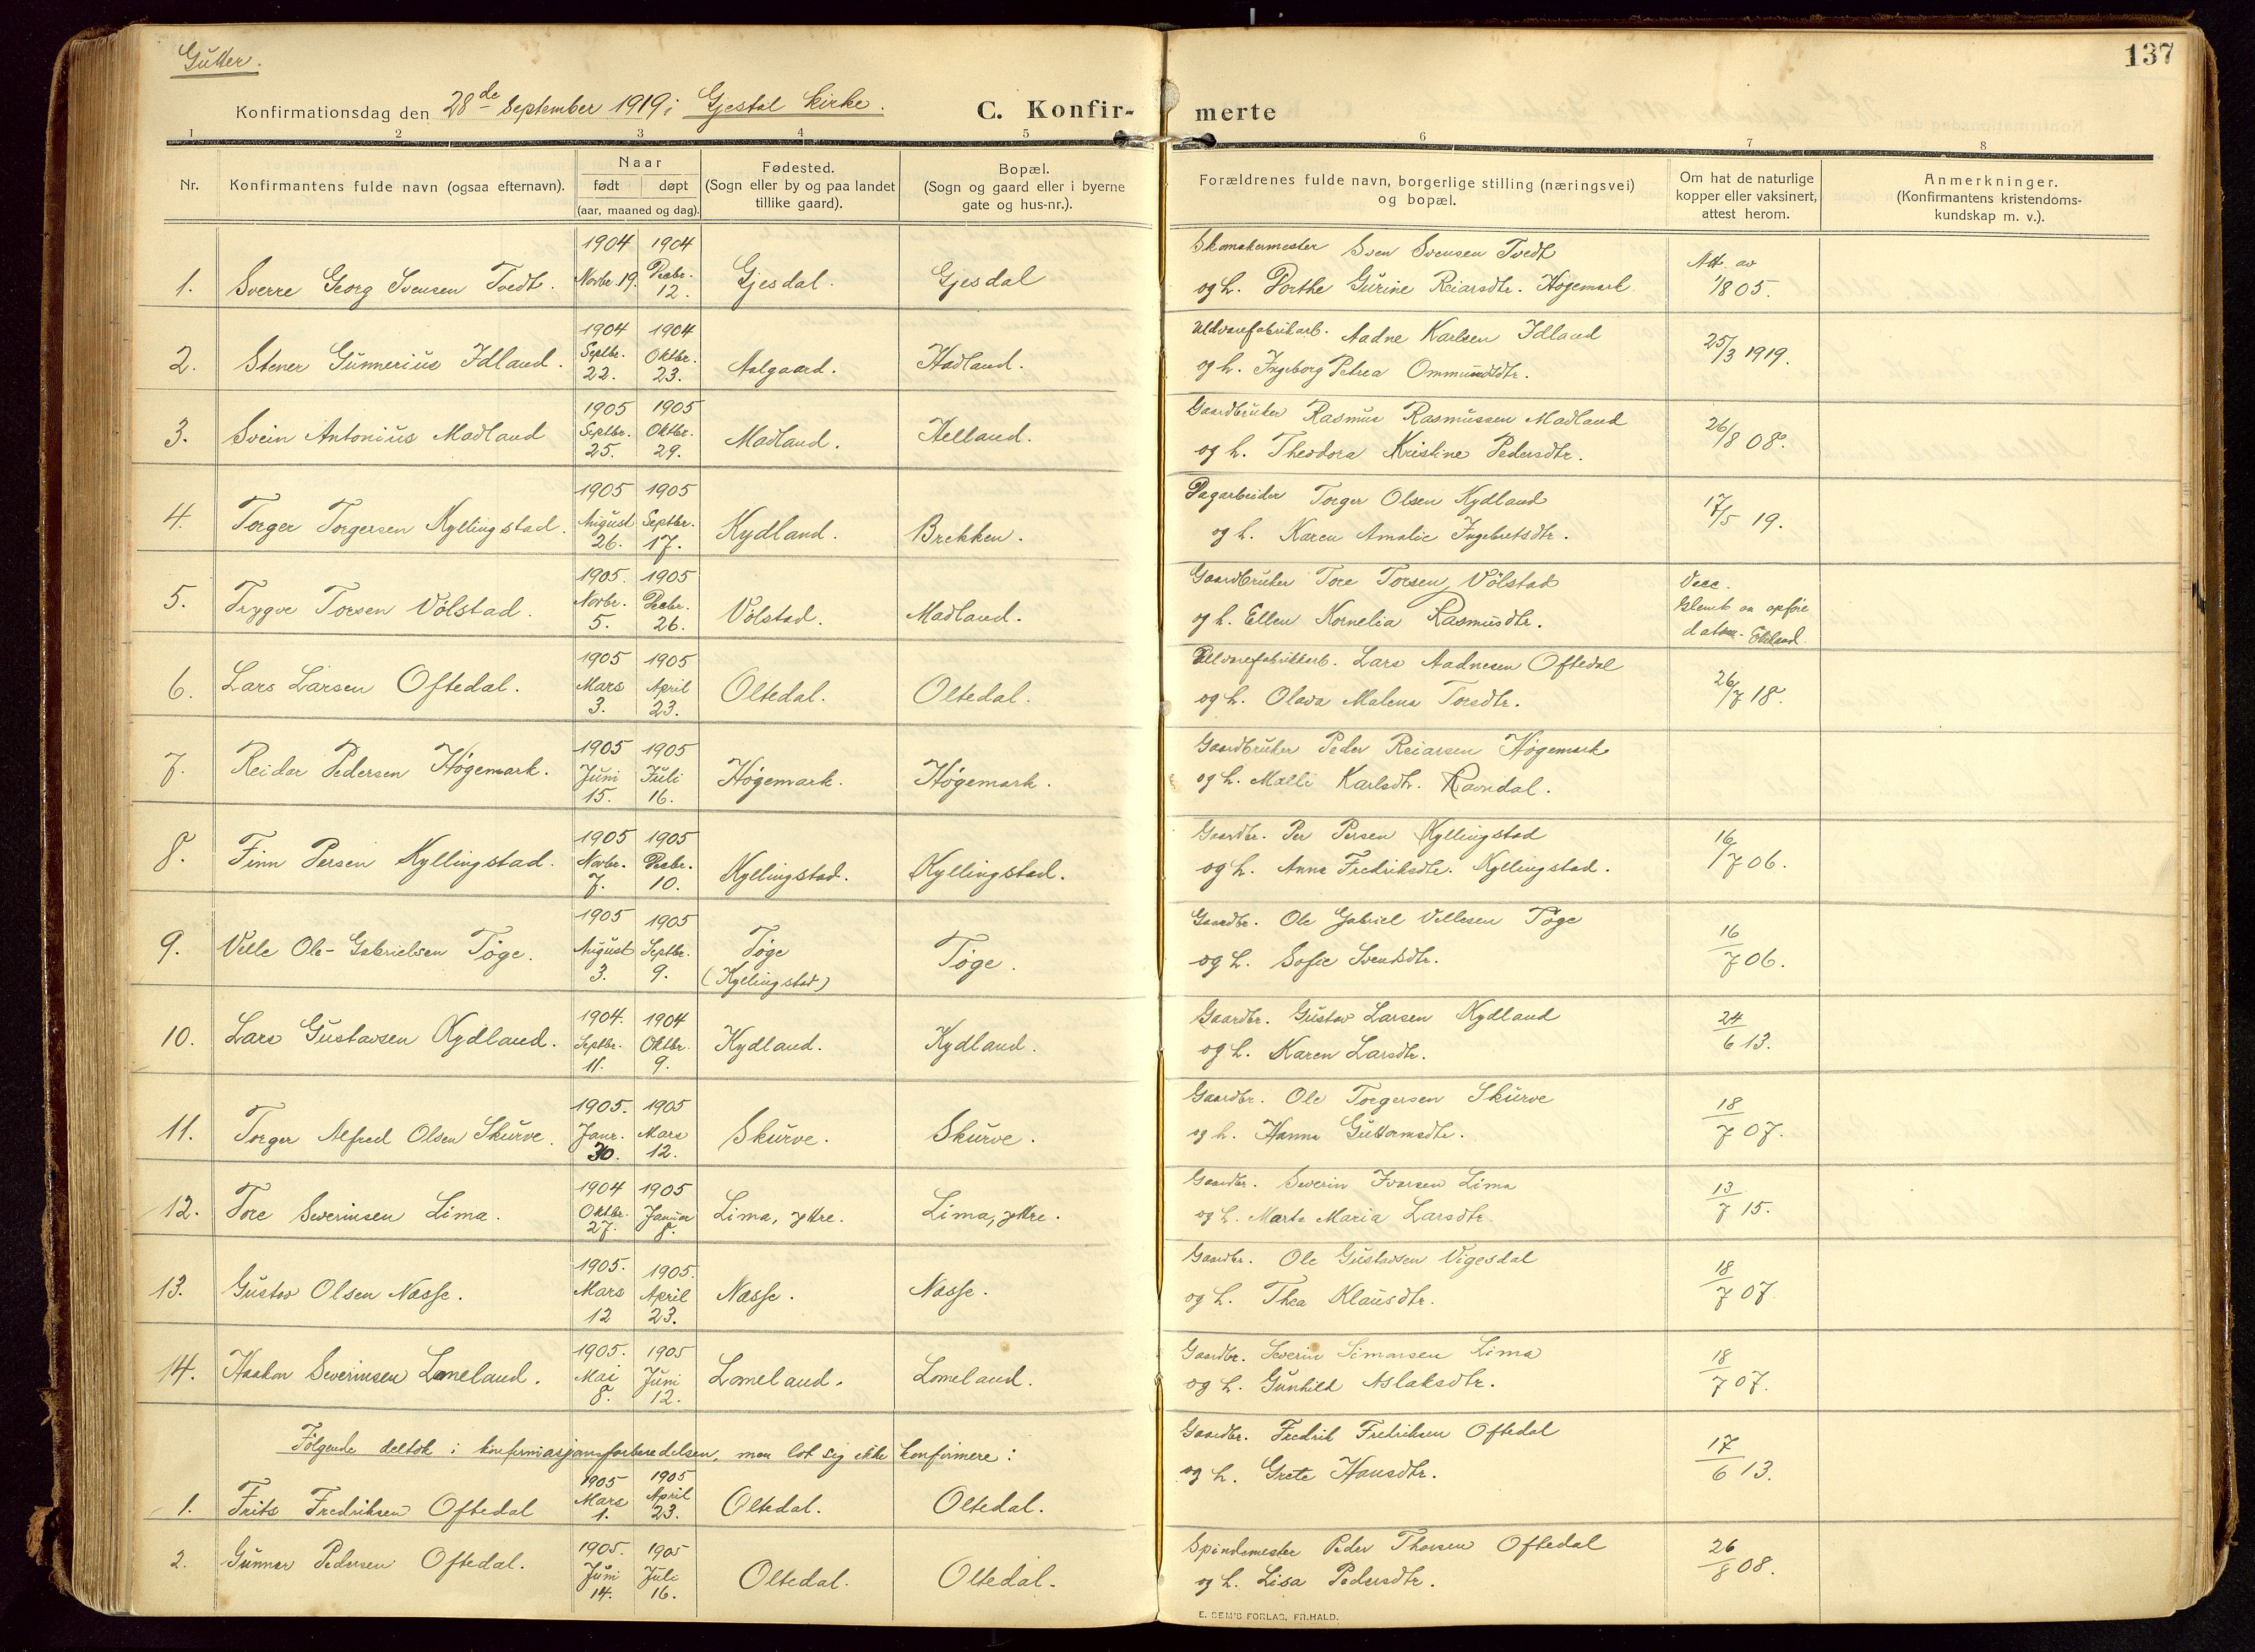 Gutter.
137
Konfirmationsdag den 28de September 1919 i Gjestal kirke.
C. Konfir-merte
1 2 3 4 5 6 7 8
Nr.
Konfirmantens fulde navn (ogsaa efternavn).
Naar
født døpt
(aar, maaned og dag).
Fødested.
(Sogn eller by og paa landet
tillike gaard).
Bopæl.
(Sogn og gaard eller i byerne
gate og hus-nr.).
Forældrenes fulde navn, borgerlige stilling (næringsvei)
og bopæl.
Om hat de naturlige
kopper eller vaksinert,
attest herom.
Anmerkninger.
(Konfirmantens kristendoms-
kundskap m. v.).
1904 1904 Skomakermester Sven Svensen Tvedt Att. av
1. Sverre Georg Svensen Tvedt. Novbr. 19. Decbr. 12. Gjesdal. Gjesdal og h. Dorthe Gurine Reiarsdtr. Høgemark 1/8 05.
1904 1904 Uldvarefabrikarb. Aadne Karlsen Idland
2. Stener Gunnerius Idland. Septbr. 22. Oktbr. 23. Aalgaard. Hadland. og h. Ingeborg Petrea Ommundsdtr. 25/3 1919.
1905 1905 Gaardbruker Rasmus Rasmussen Madland
3. Svein Antonius Madland Septbr. 25. Oktbr. 29. Madland. Helland. og h. Theodora Kristine Pedersdtr. 26/8 08.
1905 1905 Dagarbeider Torger Olsen Kydland
4. Torger Torgersen Kyllingstad. August 26. Septbr. 17. Kydland. Brekken. og h. Karen Amalie Ingebretsdtr. 17/5 19.
1905. 1905 Gaardbruker Tore Torsen Vølstad Vacc.
5. Trygve Torsen Vølstad. Novbr. 5. Decbr. 26. Vølstad. Madland. og h. Ellen Kornelia Rasmusdtr. Glemt aa opføre
datum.
1905 1905 Uldvarefabrikkarb. Lars Aadnesen Oftedal
6. Lars Larsen Oftedal. Mars 3. April 23. Oltedal. Oltedal. og h. Olava Malena Torsdtr. 26/7 18.
1905 1905 Gaardbruker Peder Reiarsen Høgemark
7. Reidar Pedersen Høgemark. Juni 15. Juli 16. Høgemark. Høgemark. og h. Malli Karlsdtr. Ravndal.
1905 1905 Gaardbr. Per Persen Kyllingstad
8. Finn Persen Kyllingstad. Novbr. 7. Decbr. 10. Kyllingstad. Kyllingstad. og h. Anna Fredriksdtr. Kyllingstad. 16/7 06.
1905 1905 Gaardbr. Ole Gabriel Vellesen Tøge
9. Velle Ole-Gabrielsen Tøge. August 3. Septbr. 9. Tøge (Kyllingstad) Tøge. og h. Sofie Svendsdtr. 16/7 06.
1904. 1904 Gaardbr. Gustav Larsen Kydland
10. Lars Gustavsen Kydland. Septbr. 11. Oktbr. 9. Kydland. Kydland. og h. Karen Larsdtr. 24/6 13.
1905. 1905 Gaardbr. Ole Torgersen Skurve
11. Torger Alfred Olsen Skurve. Janr. 30. Mars 12. Skurve. Skurve. og h. Hanna Guttormsdtr. 18/7 07.
1904 1905 Gaardbr. Severin Ivarsen Lima
12. Tore Severinsen Lima. Oktbr. 27. Januar 8. Lima, ytre. Lima, ytre. og h. Marta Maria Larsdtr. 13/7 15.
1905. 1905. Gaardbr. Ole Gustavsen Vigesdal
13. Gustav Olsen Næsse. Mars 12 April 23. Næsse. Næsse. og h. Thea Klausdtr. 18/7 07.
1905. 1905 Gaardbr. Severin Simonsen Lima
14. Haakon Severinsen Lomeland. Mai 8. Juni 12. Lomeland. Lomeland. og h. Gunhild Aslaksdtr. 18/7 07.
Følgende deltok i konfirmasjonsforberedelsen, men lot sig ikke konfirmere:
1905 1905 Gaardbr. Fredrik Fredriksen Oftedal
1. Frits Fredriksen Oftedal Mars 1. April 23. Oltedal. Oltedal. og h. Grete Hansdtr. 17/6 13.
1905. 1905 Spindemester Peder Thorsen Oftedal
2. Gunnar Pedersen Oftedal. Juni 14. Juli 16. Oltedal. Oltedal. og h. Lisa Pedersdtr. 26/8 08.
E. SEM'S FORLAG, FR.HALD.